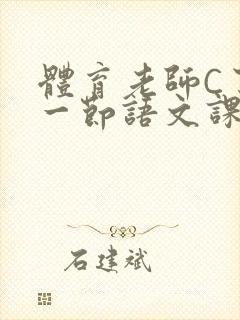 體育老師C
一節語文課
石建斌